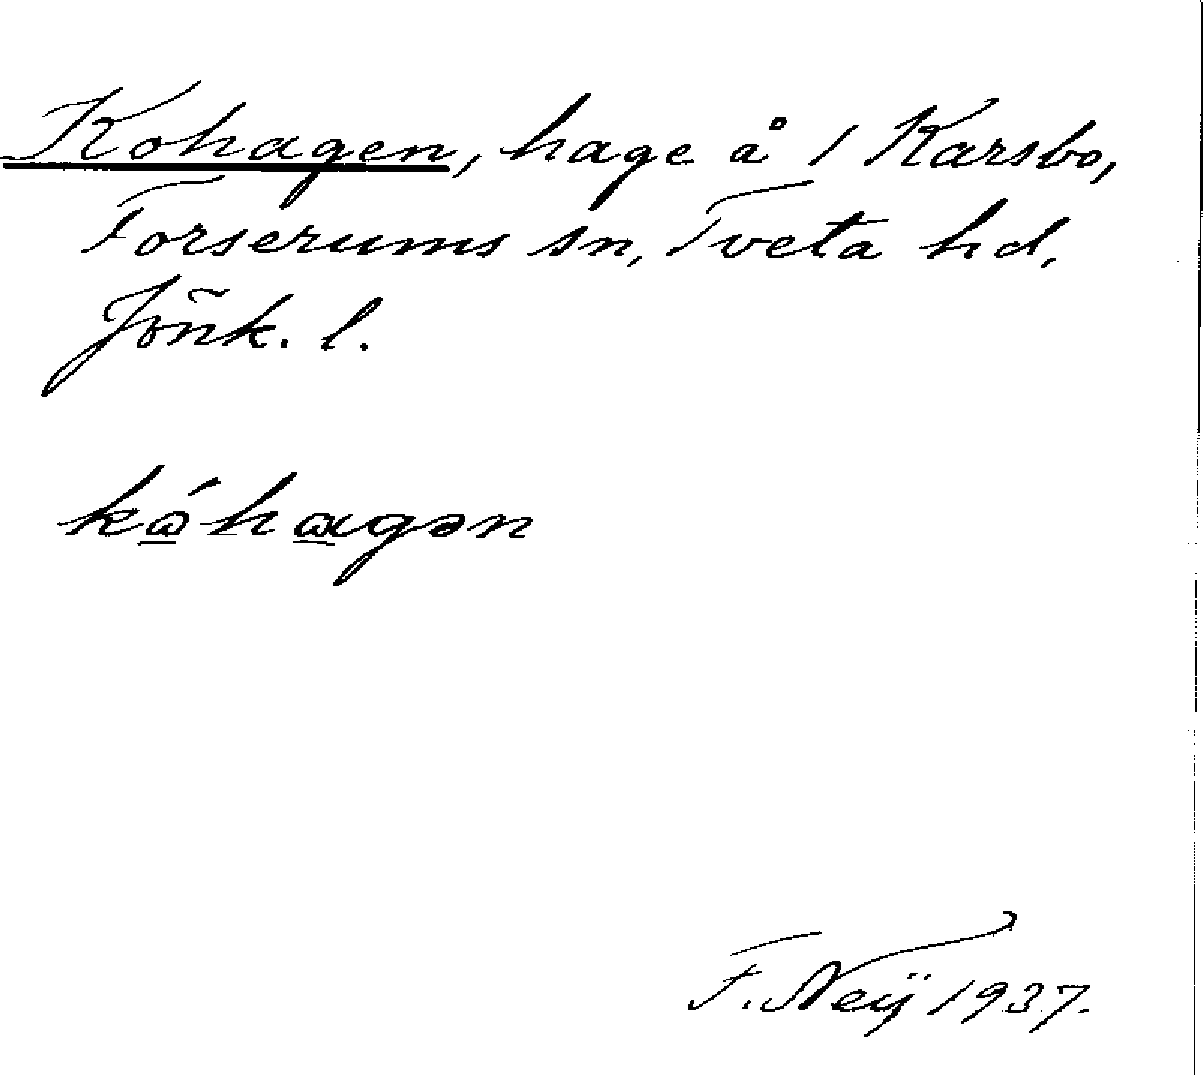 Kohagen, hage å 1 Karsbo,
Forserums sn, Tveta hd,
Jönk. l.
kɷ́hɑgən
F. Neÿ 1937.